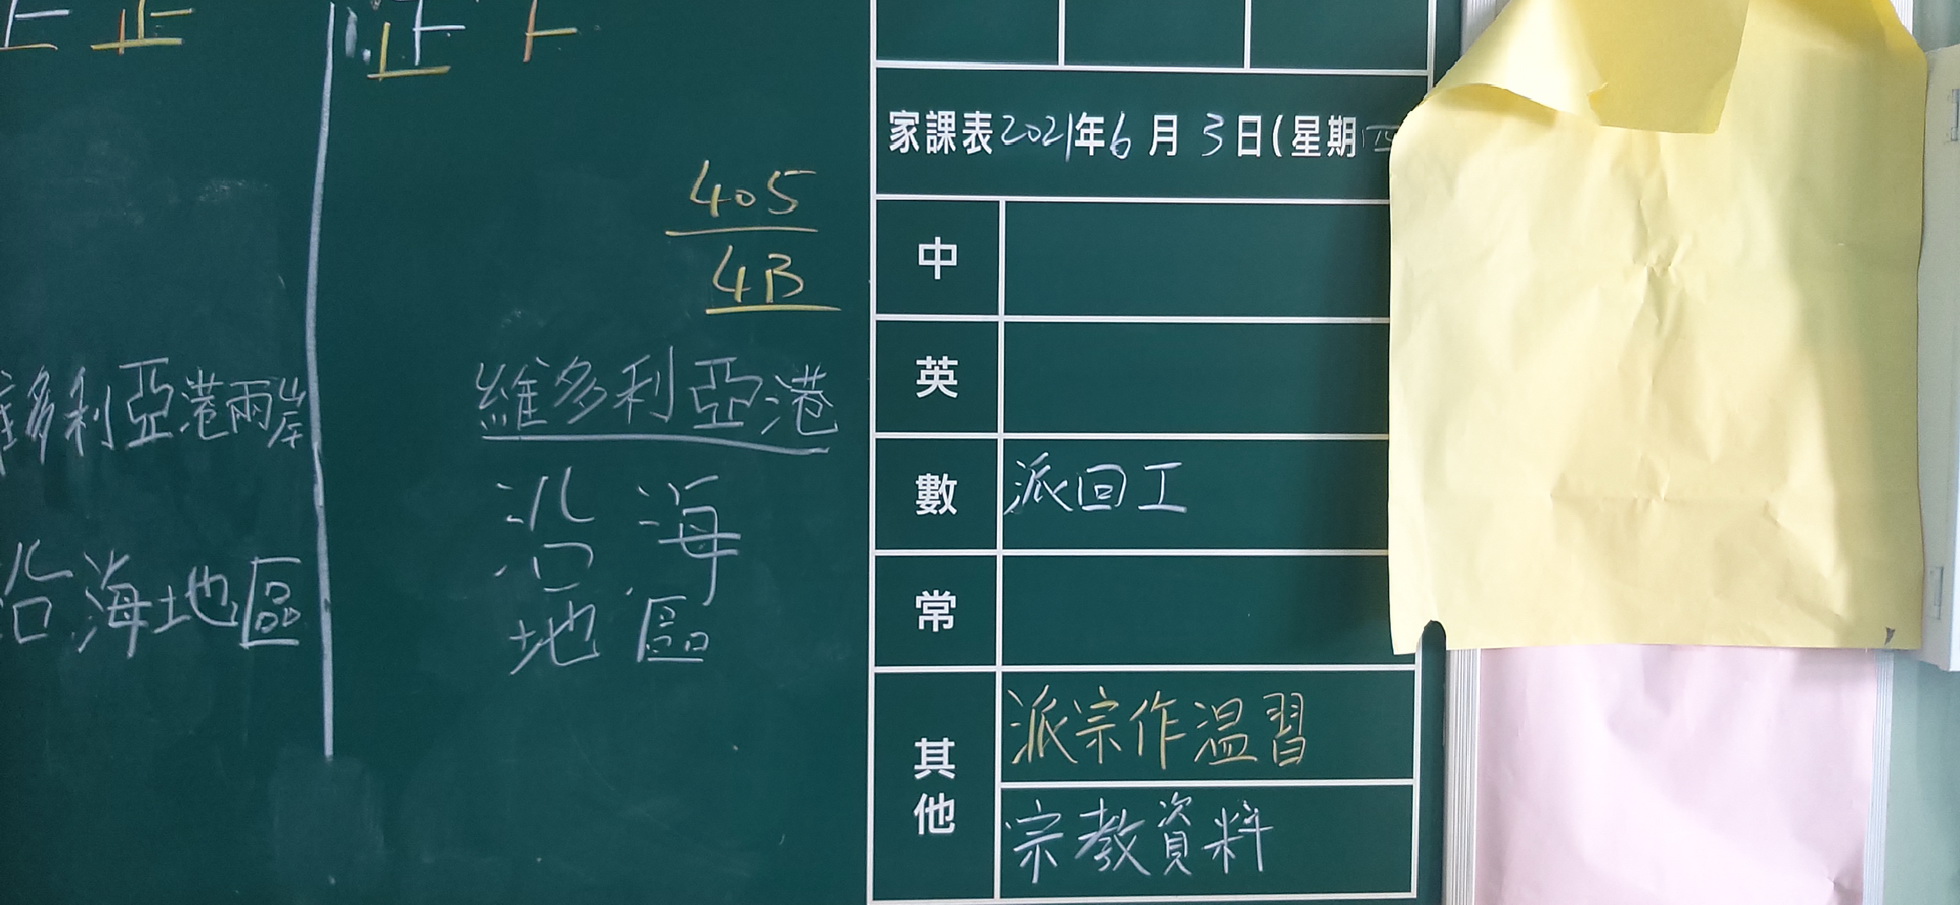 正
正
405
4B
維多利亞港兩岸
沿海地區
維多利亞港
沿海
地區
家課表2021年6月3日(星期四
中
英
數 派回工
常
其他
派宗作温習
宗教資料